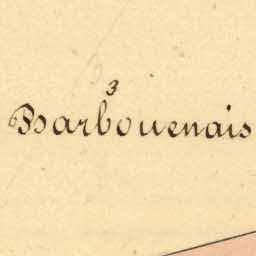 3
Barbouenais